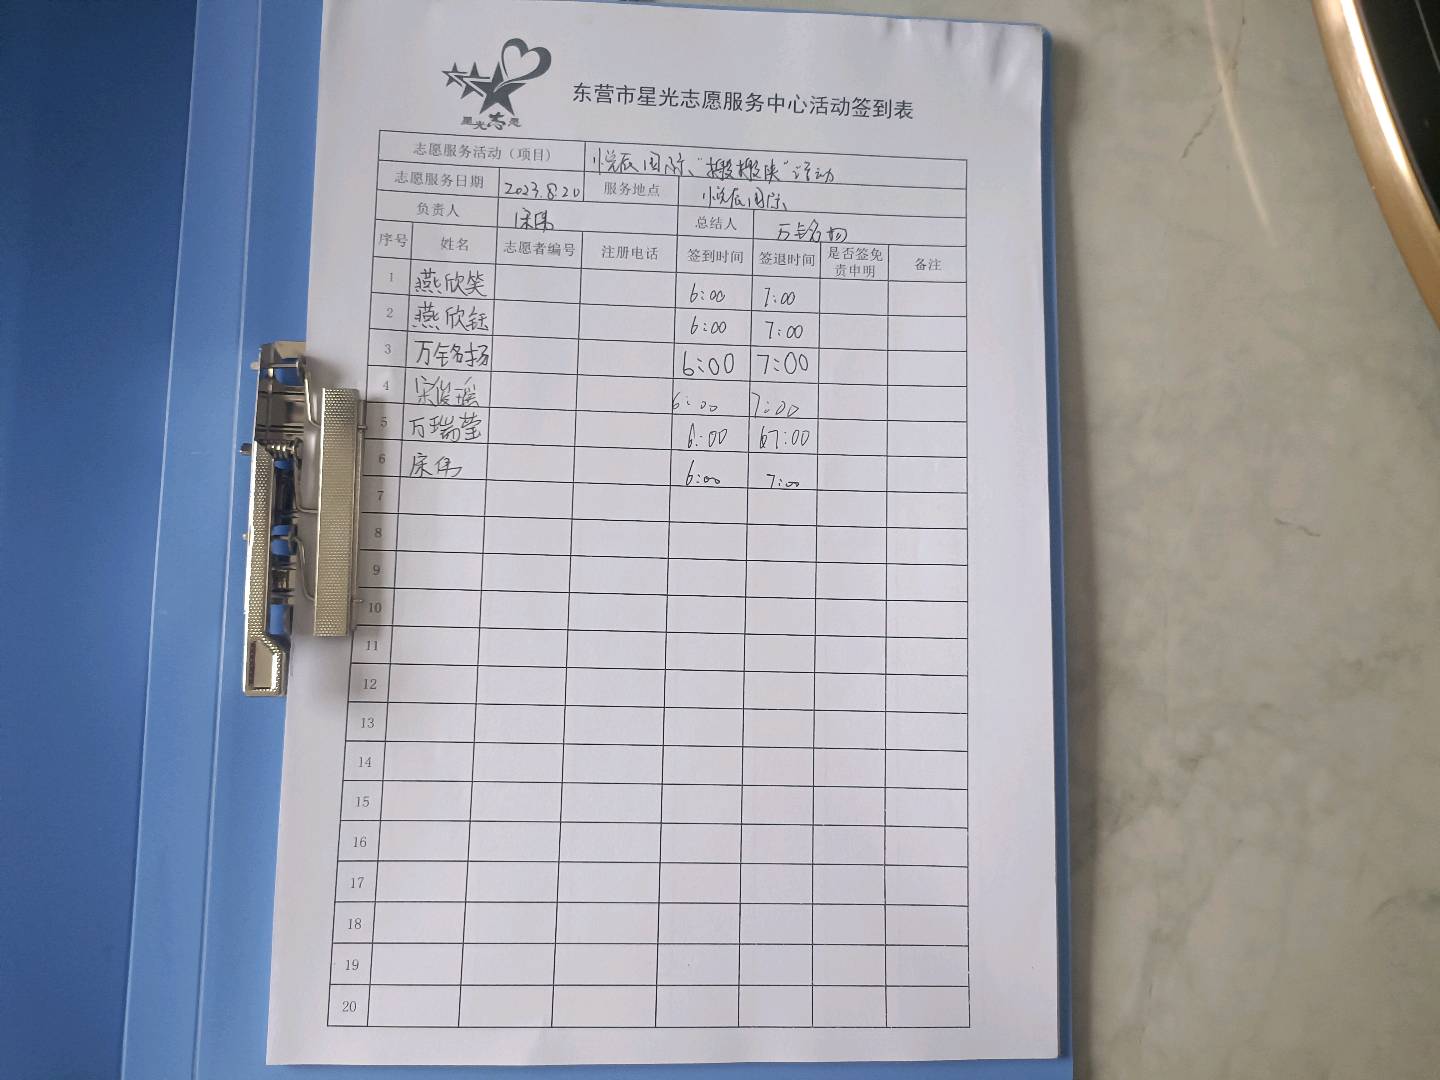 星光志愿
东营市星光志愿服务中心活动签到表
志愿服务活动（项目） 悦辰国际、"搬搬侠"活动
志愿服务日期 2023.8.20 服务地点 悦辰国际
负责人 宋伟 总结人 万铭扬
序号 姓名 志愿者编号 注册电话 签到时间 签退时间 是否签免责申明 备注
1 燕欣笑 6:00 7:00
2 燕欣钰 6:00 7:00
3 万铭扬 6:00 7:00
4 宋俊瑶 6:00 7:00
5 万瑞莹 6:00 67:00
6 宋伟 6:00 7:00
7
8
9
10
11
12
13
14
15
16
17
18
19
20